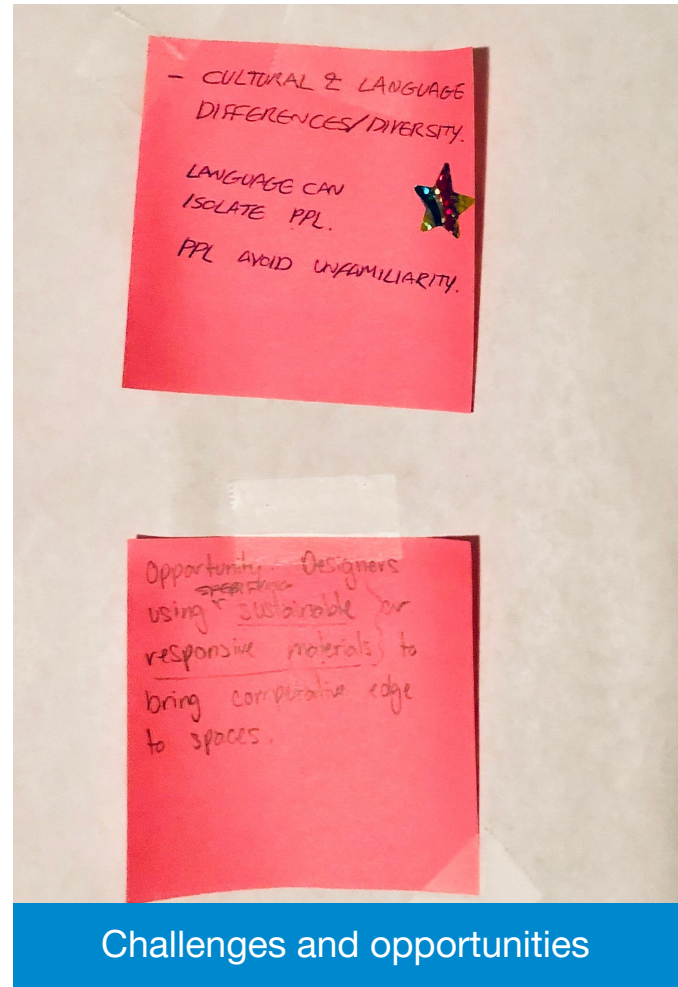 - CULTURAL & LANGUAGE
DIFFERENCES/DIVERSITY.
LANGUAGE CAN
ISOLATE PPL.
PPL AVOID UNFAMILIARITY.
Opportunity Designers
using sustainable or
responsive materials to
bring edge
to spaces.
Challenges and opportunities